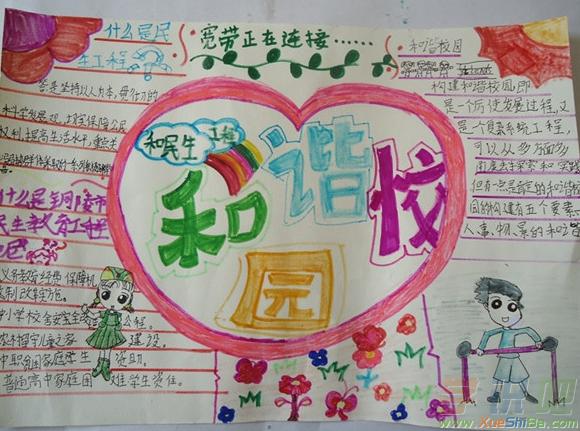 什么是民
生工程
答：是坚持以人为本，
科学发展观，切实保障公民
权利，提高生活水平，重点
什么是铜陵市
民生教育工程
呢
义务教育经费保障机
制改革方施。
中小学校舍安全改 工程。
建设。
中职贫困家庭学生 资助。
普通高中家庭困 难学生资住。
宽带正在连接……
和民生 工程
和谐校
园
和谐校园
构建和谐校园，即
是一个历使发展过程，又
是一个复系统工程，
可以从多方面多
角度去探索和实践
但有一点是肯定的和谐校
园的构建有五个要素
人、事、物、景的和谐
学识吧
www.XueShiBa.com